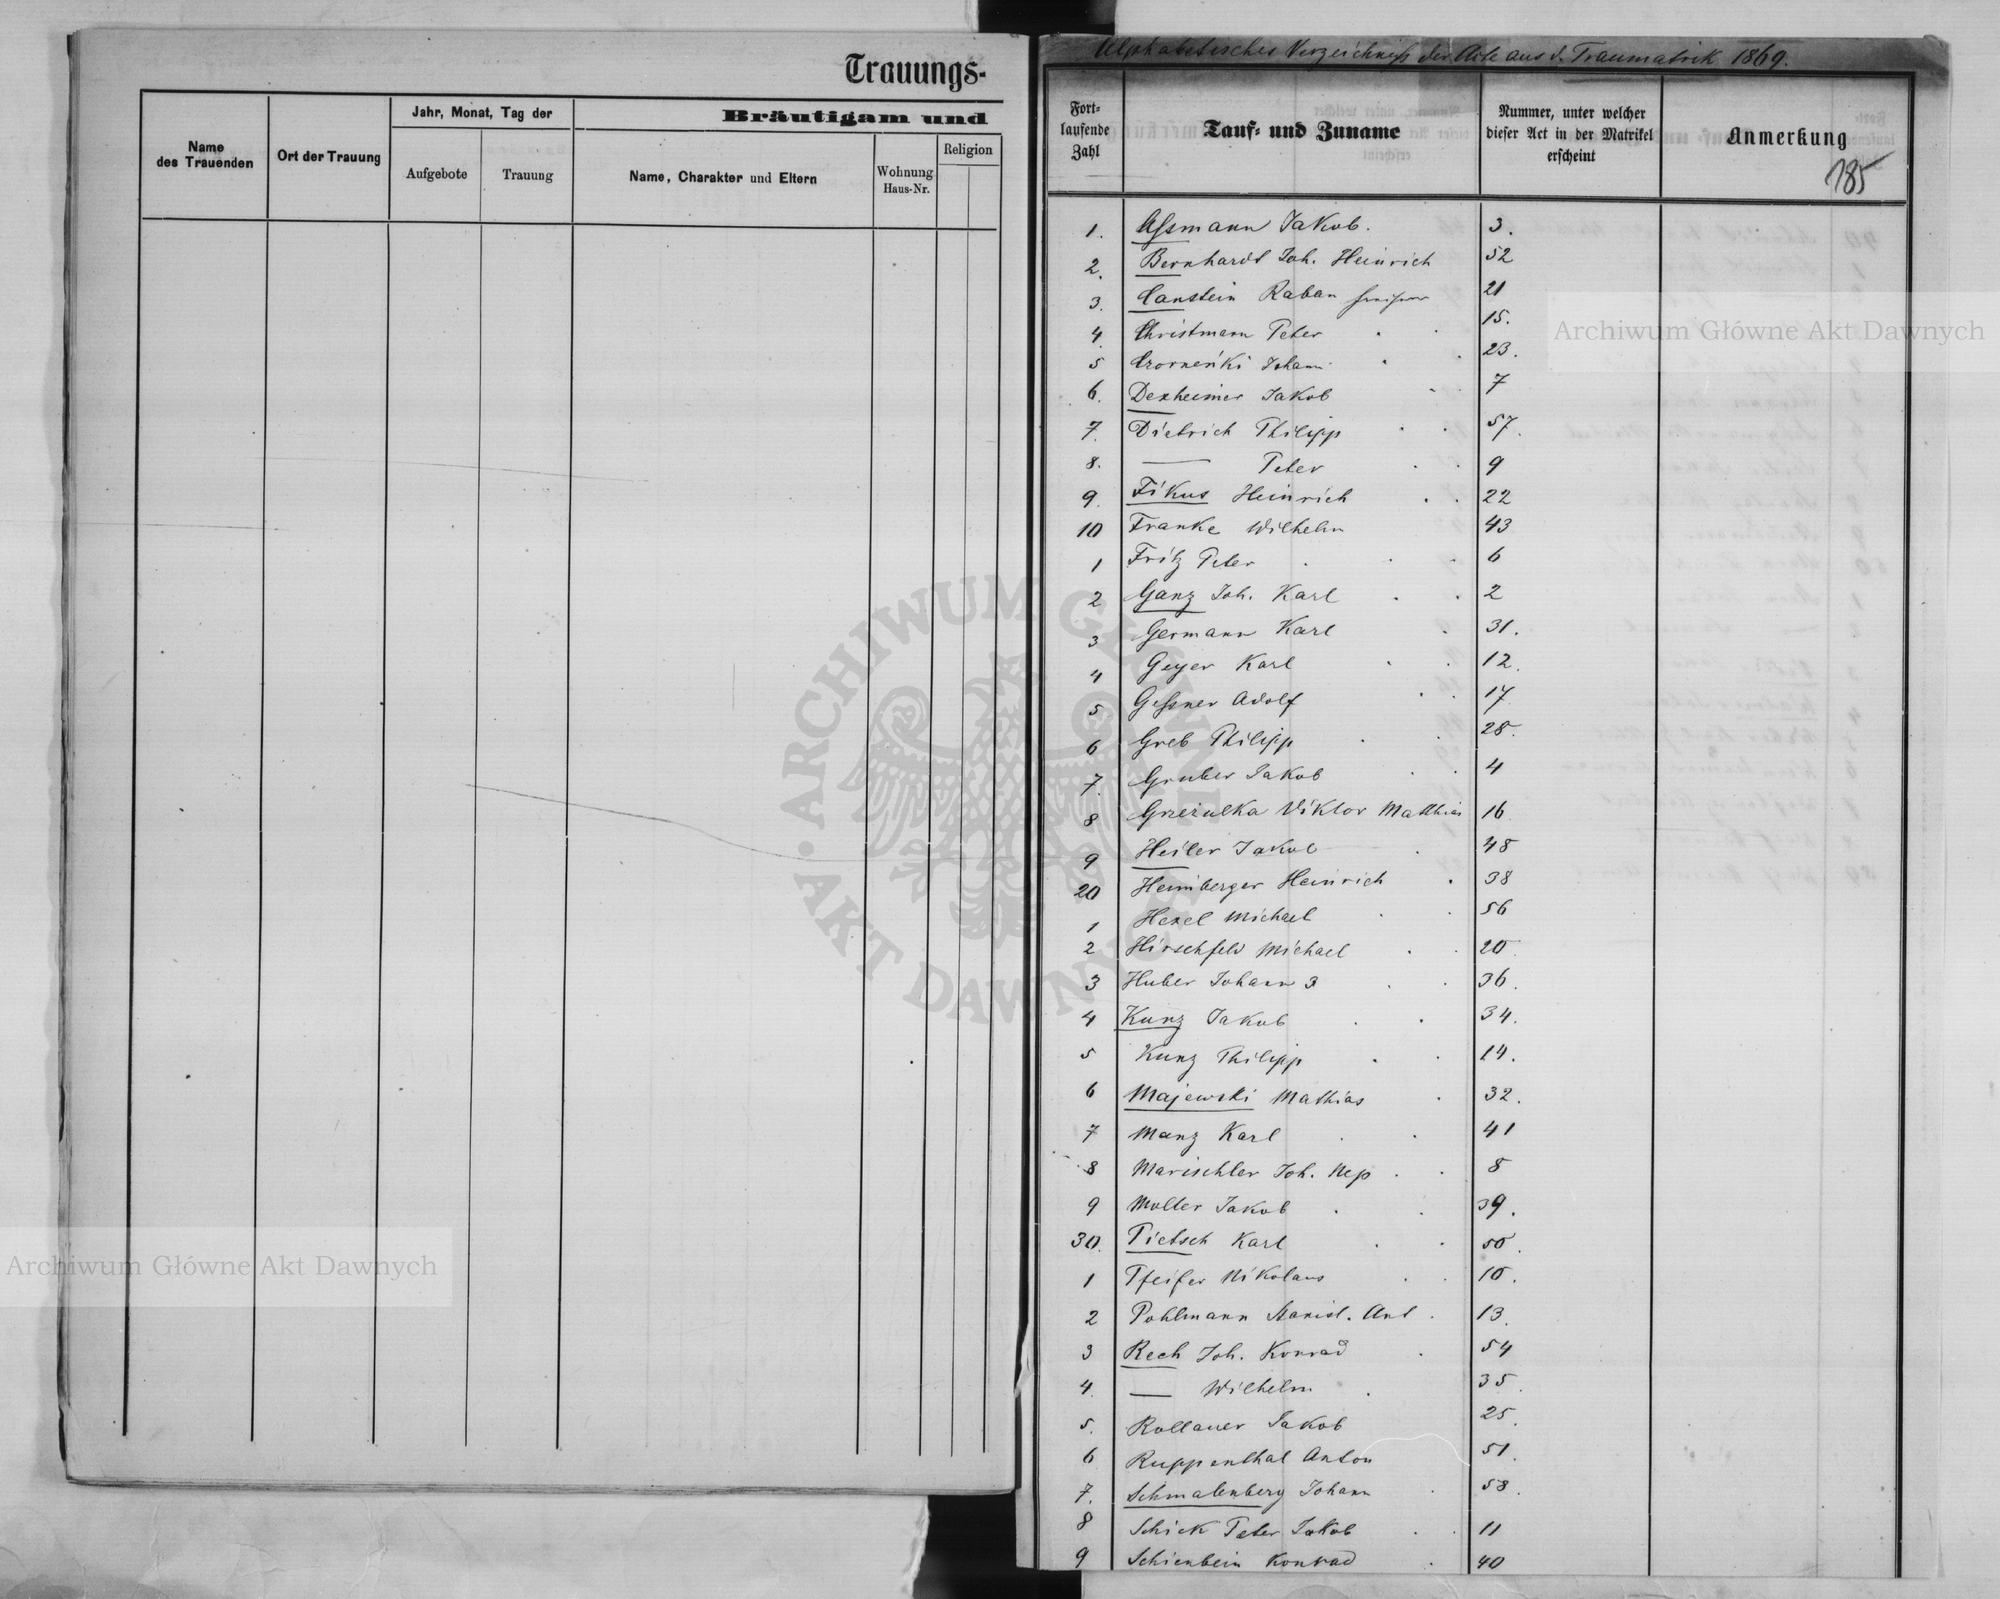 Trauungs-
Name des Trauenden
Ort der Trauung
Jahr, Monat, Tag der
Aufgebote
Trauung
Bräutigam und
Name, Charakter und Eltern
Wohnung Haus-Nr.
Religion
Alphabetisches Verzeichniß der Acte aus d. Traumatrik 1869.
Fort-laufende Zahl
Tauf- und Zuname
Nummer, unter welcher dieser Act in der Matrikel erscheint
Anmerkung
185
1. Aßmann Jakob. 3.
2. Bernhardt Joh. Heinrich 52
3. Canstein Raban 21
4 Christmann Peter 15.
5 Czorneńki Johann 23.
6. Dexheimer Jakob 7
7. Dietrich Philipp 57.
8. — Peter 9
9. Fikus Heinrich 22
10 Franke Wilhelm 43
1 Fritz Peter 6
2 Ganz Joh. Karl 2
3 Germann Karl 31.
4 Geyer Karl 12.
5 Geßner Adolf 17.
6 Greb Philipp 28.
7. Gruber Jakob 4
8 Grzezulka Viktor Matthias 16
9 Heiler Jakob 48
20 Heimberger Heinrich 38
1 Hexel Michael 56
2 Hirschfeld Michael 20
3 Huber Johann 3 36.
4 Kunz Jakob 34.
5 Kunz Philipp 14.
6 Majewski Mathias 32.
7 Manz Karl 41
8 Marischler Joh. Nep 8
9 Molter Jakob 39.
30. Pietsch Karl 50.
1 Pfeifer Nikolaus 10.
2 Pohlmann Stanisl. Ant. 13.
3 Rech Joh. Konrad 54
4. — Wilhelm 35.
5. Rollauer Jakob 25.
6 Ruppenthal Anton 51.
7. Schmalenberg Johann 53.
8 Schick Peter Jakob 11
9 Schienbein Konrad 40
Archiwum Główne Akt Dawnych
Archiwum Główne Akt Dawnych
ARCHIWUM GŁÓWNE AKT DAWNYCH